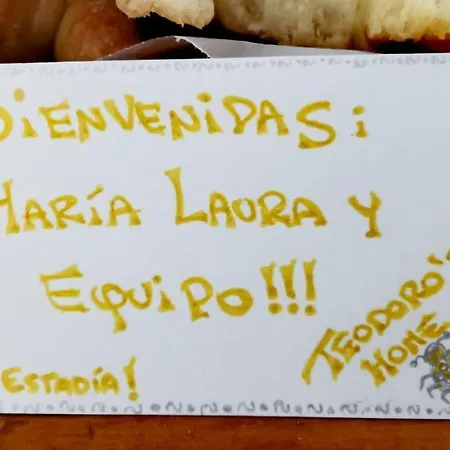 BIENVENIDAS:
MARÍA LAURA Y
EQUIPO!!!
ESTADÍA!
TEODORO'S
HOME